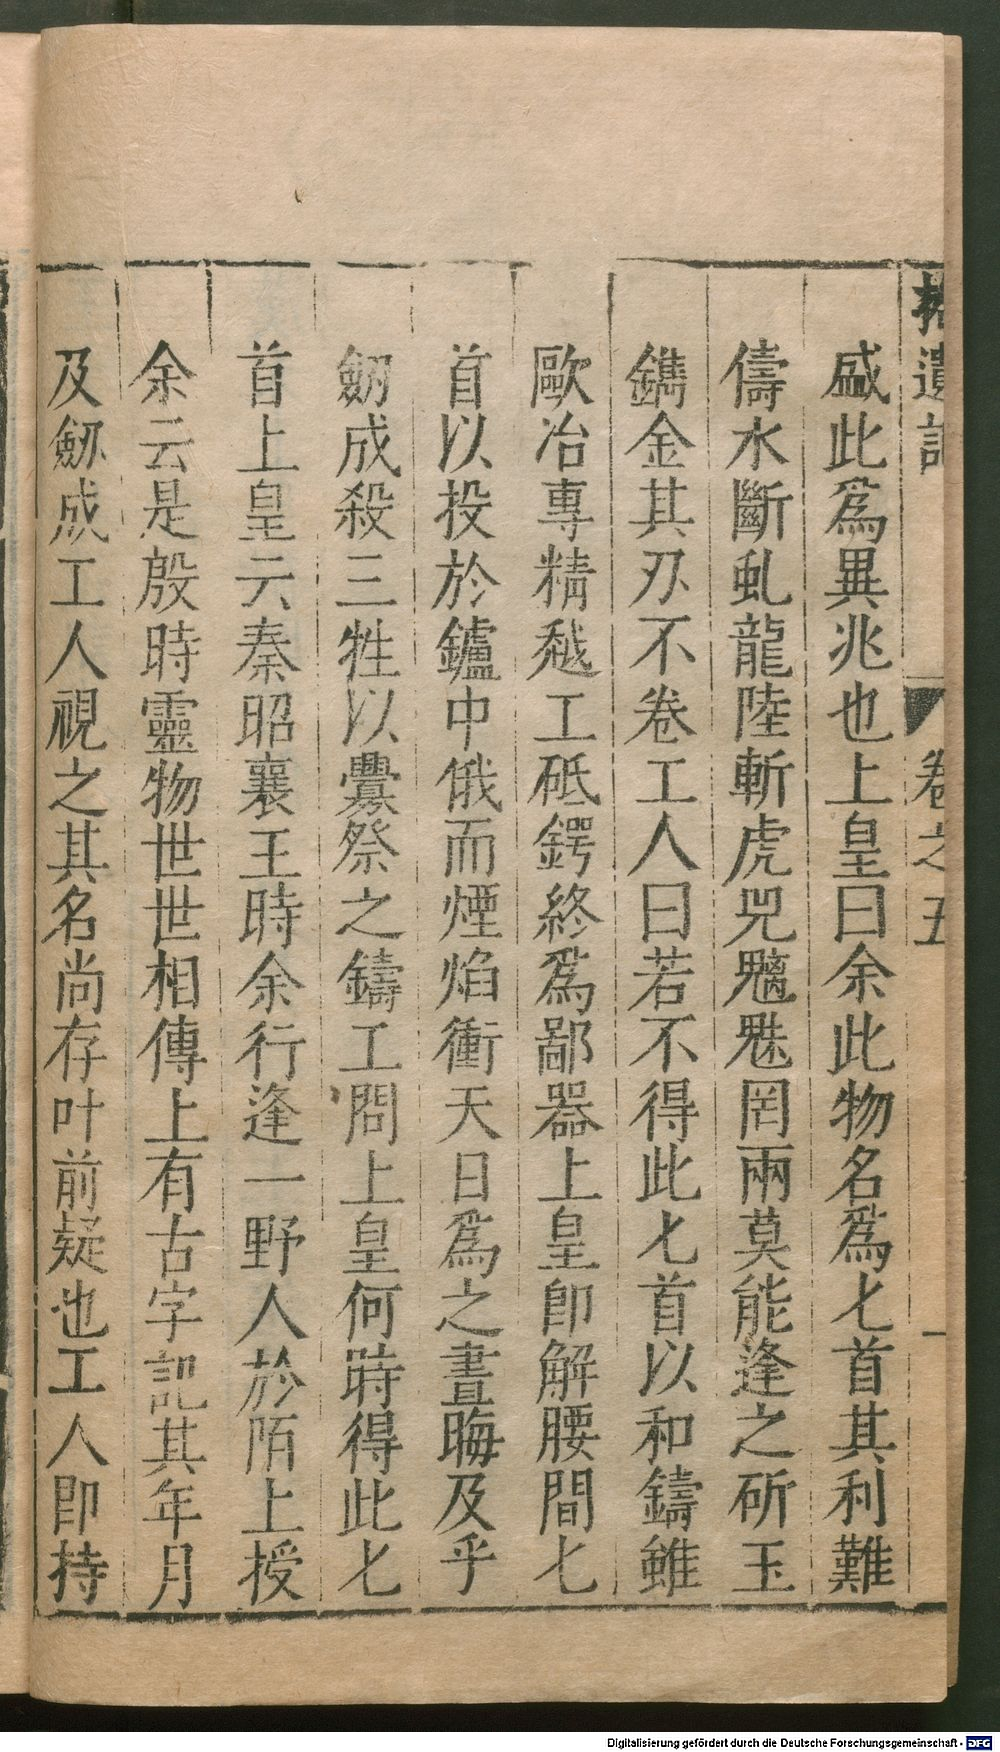 拾遺記 卷之五 一
盛此爲異兆也上皇曰余此物名爲匕首其利難
儔水斷虬龍陸斬虎兕魑魅罔兩莫能逢之斫玉
鐫金其刃不卷工人曰若不得此匕首以和鑄雖
歐冶專精越工砥鍔終爲鄙器上皇卽解腰間匕
首以投於鑪中俄而煙焰衝天日爲之晝晦及乎
劒成殺三牲以釁祭之鑄工問上皇何時得此匕
首上皇云秦昭襄王時余行逢一野人於陌上授
余云是殷時靈物世世相傳上有古字記其年月
及劒成工人視之其名尚存叶前疑也工人卽持
Digitalisierung gefördert durch die Deutsche Forschungsgemeinschaft - DFG